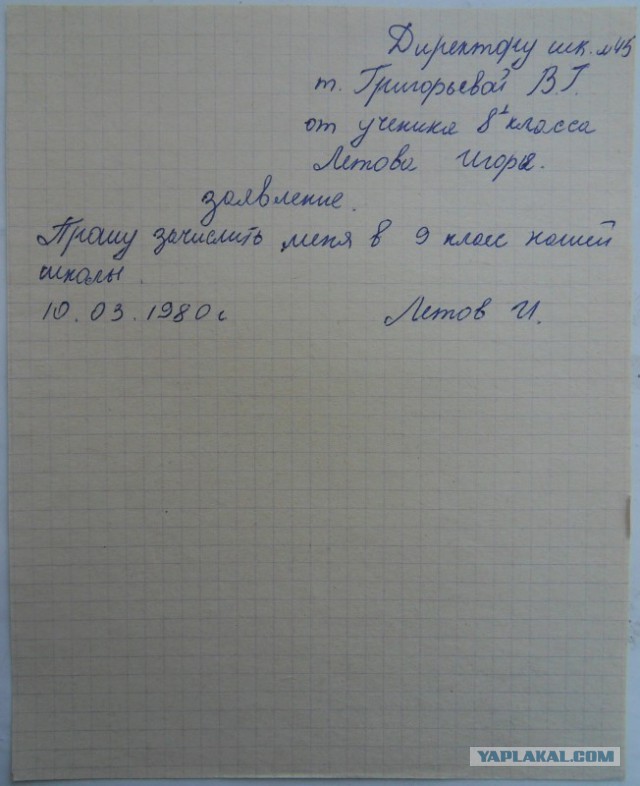 Директору шк. №45
т. Григорьевой В.Г.
от ученика 8¹ класса
Летова Игоря.
заявление.
Прошу зачислить меня в 9 класс нашей
школы.
10.03.1980г Летов И.
YAPLAKAL.COM